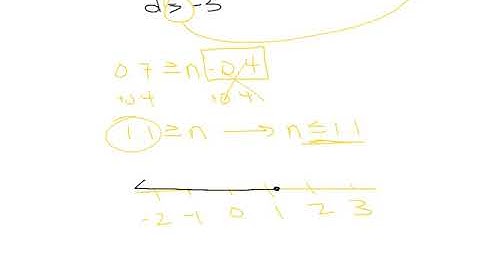 d > -5
0.7 ≥ n - 0.4
+0.4 +0.4
1.1 ≥ n → n ≤ 1.1
-2 -1 0 1 2 3